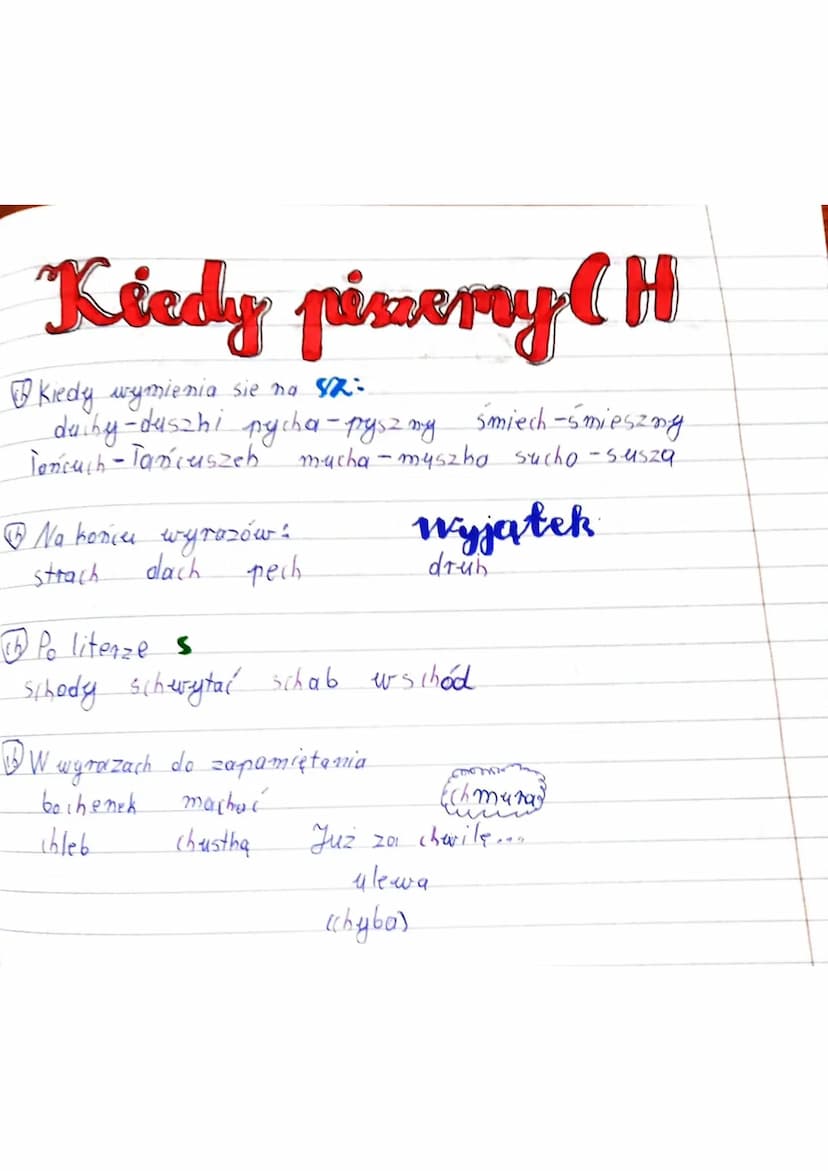 Kiedy piszemy CH
ch Kiedy wymienia się na sz:
duchy-duszki pycha-pyszny śmiech-śmieszny
łańcuch-łańcuszek mucha-muszka sucho-susza
ch Na końcu wyrazów: wyjątek
strach dach pech druh
ch Po literze s
schody schwytać schab wschód
ch W wyrazach do zapamiętania
bochenek machać chmura
chleb chustka Już za chwilę...
ulewa
(chyba)